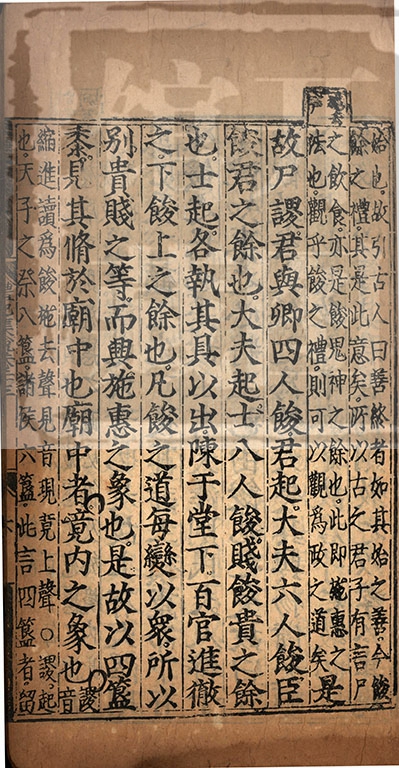 始也故引古人曰善終者如其始之善今餕
餘之禮其是此意矣所以古之君子有言尸
之飲食亦是餕鬼神之餘也此即施惠之
法也觀乎餕之禮則可以觀爲政之道矣是
故尸謖君與卿四人餕君起大夫六人餕臣
餕君之餘也大夫起士八人餕賤餕貴之餘
也士起各執其具以出陳于堂下百官進徹
之下餕上之餘也凡餕之道每變以衆所以
別貴賤之等而興施惠之象也是故以四簋
黍見其脩於廟中也廟中者竟内之象也謖音
縮進讀爲餕施去聲見音現竟上聲○謖起
也天子之祭八簋諸侯六簋此言四簋者留